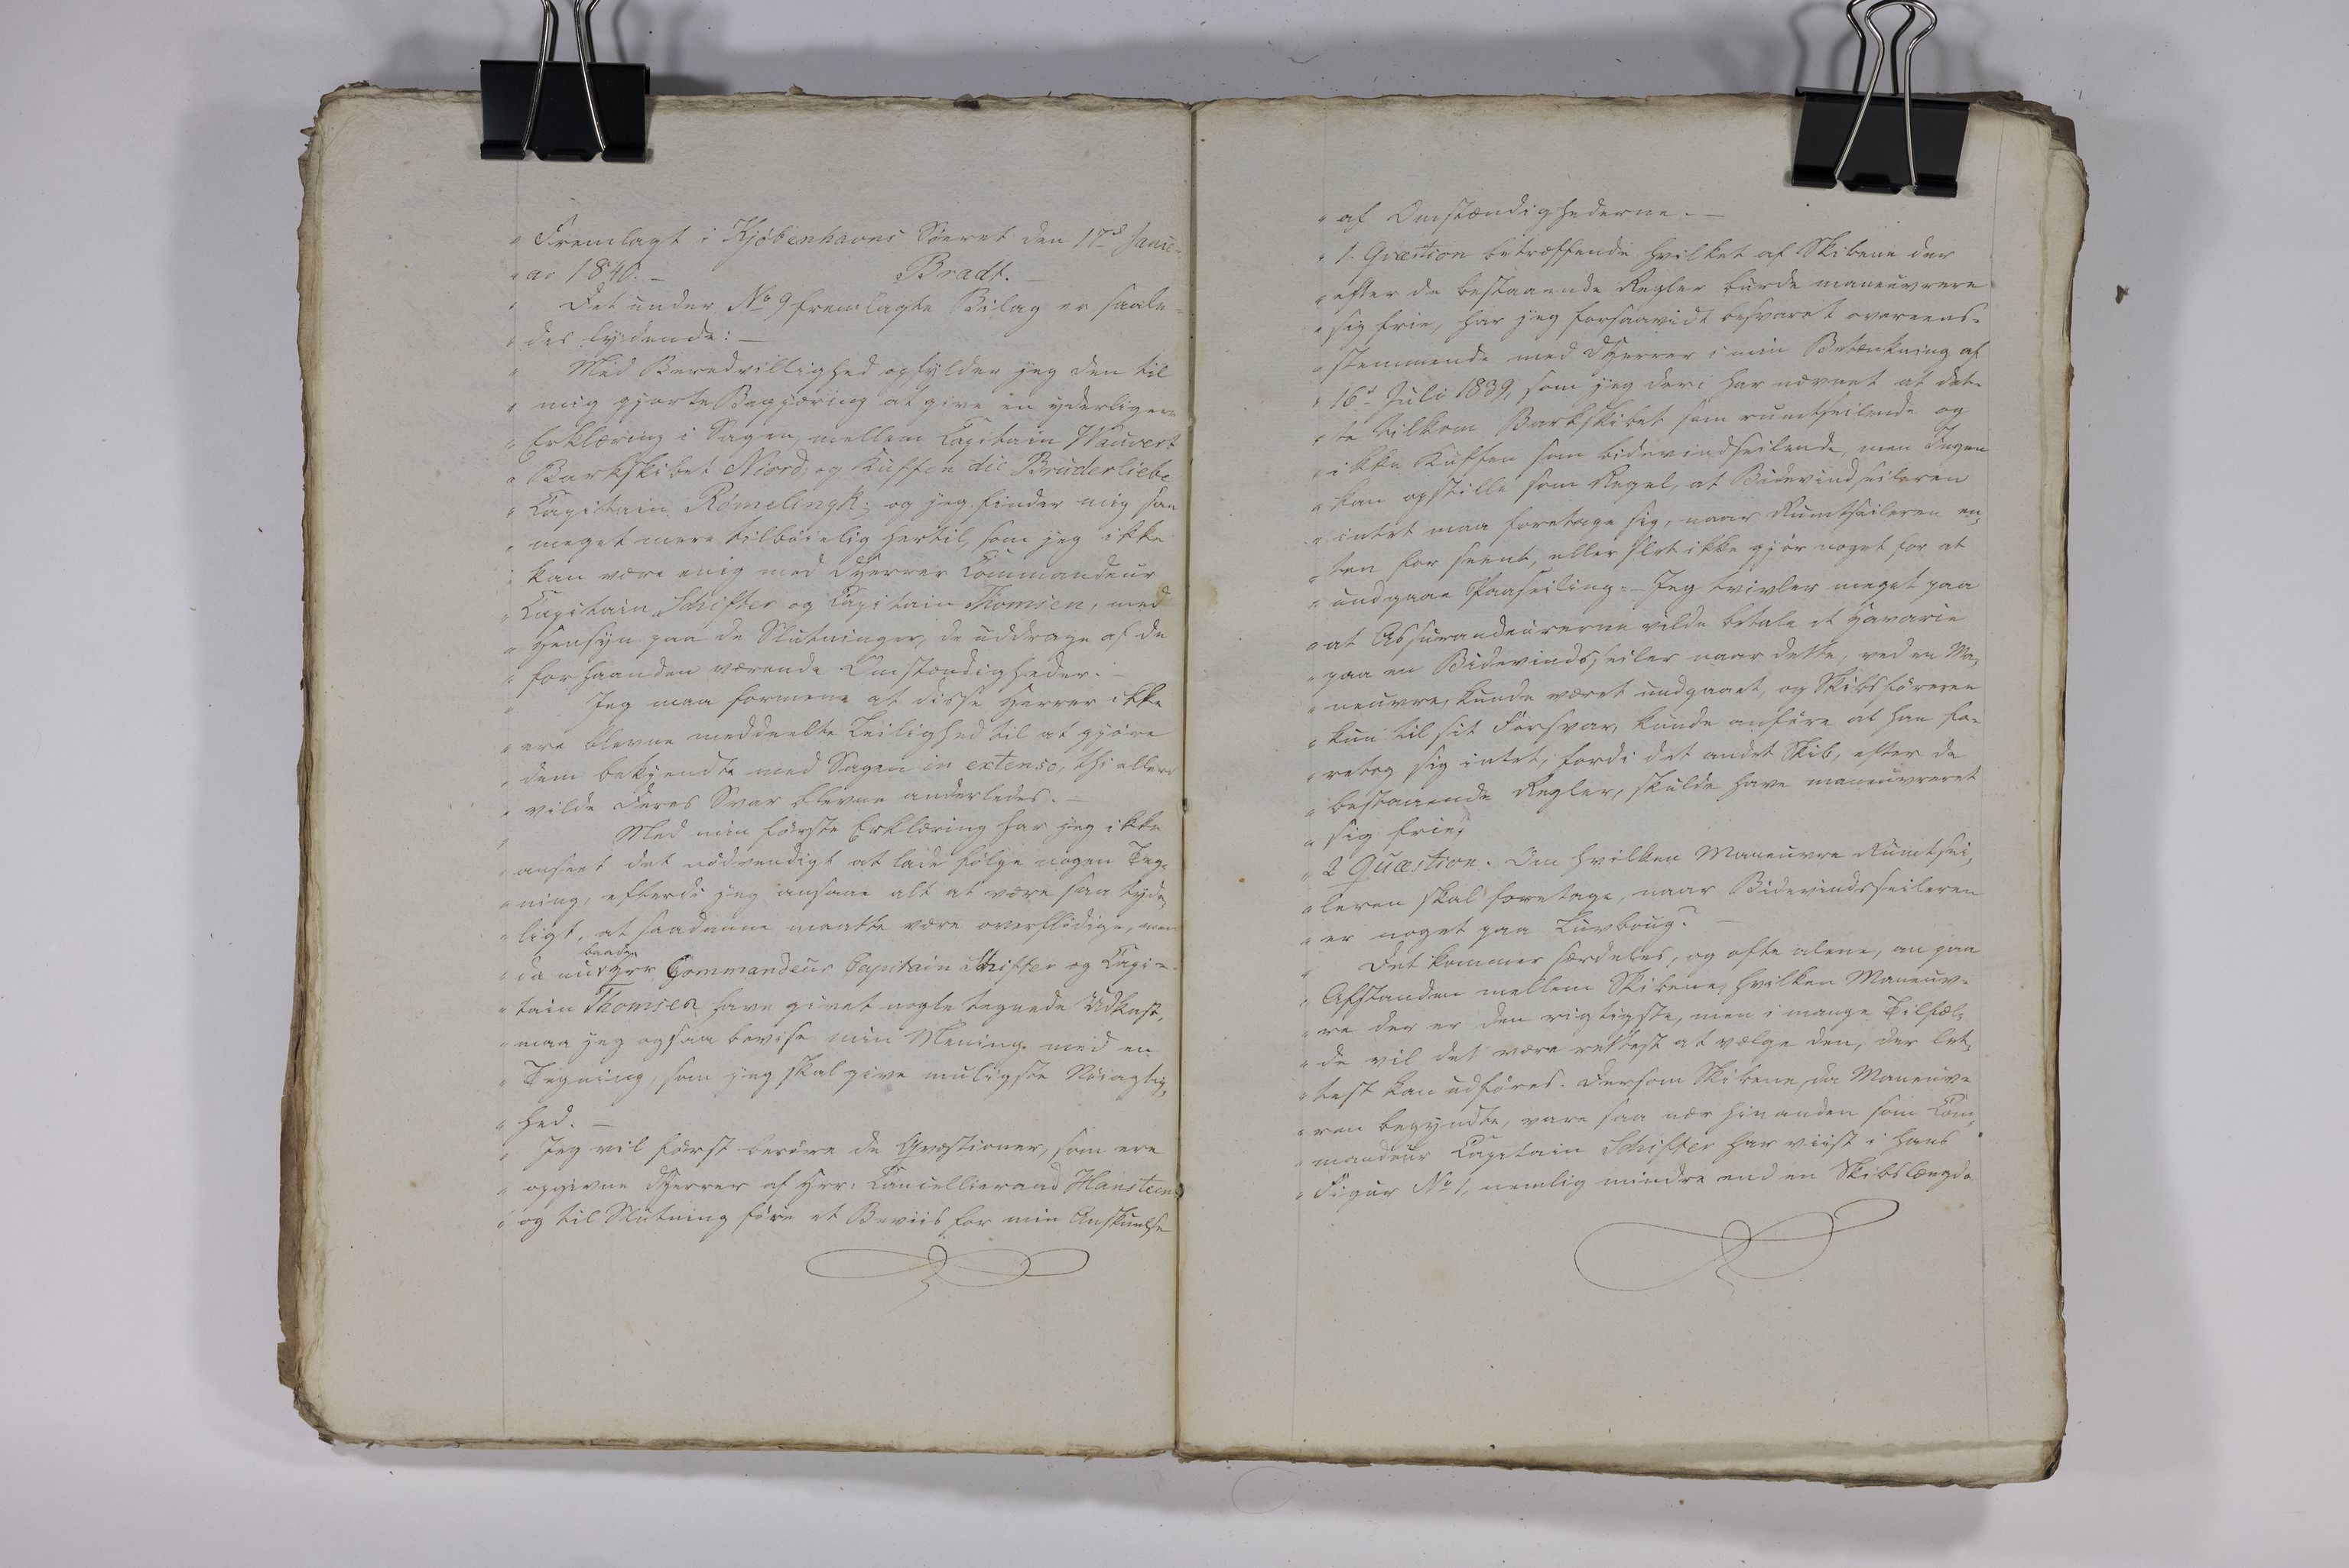 " Fremlagt i Kjöbenhavns Söeret den 17d Janu-
" ar 1840. – Bradt. –
" Det under No 9 fremlagte Bilag er saale-
" des lydende: –
" Med Beredvillighed opfylder jeg den til
" mig gjorte Begjæring at give en yderligere
" Erklæring i Sagen, mellem Capitain Wauvert
" Barkskibet Niord; og Kuffen die Brüderliebe
" Capitain Römelingk; og jeg finder mig saa
" meget mere tilböielig hertil, som jeg ikke
" kan være enig med DHerrer Commandeur
" Capitain Schifter og Capitain Thomsen, med
" Hensyn paa de Slutninger, de uddrage af de
" forhaanden værende Omstændigheder. –
" Jeg maa formene at disse Herrer ikke
" ere blevne meddeelte Leilighed til at gjöre
" dem bekjendte med Sagen in extenso, thi ellers
" vilde Deres Svar blevne anderledes. –
" Med min förste Erklæring har jeg ikke
" anseet det nödvendigt at lade fölge nogen Teg-
" ning, efterdi jeg ansaae alt at være saa tyde,
" ligt, at saadanne maatte være overflödige, men
" da nu baade Hrr Commandeur Capitain Schifter og Capi-
" tain Thomsen have givet nogle tegnede Udkast,
" maa jeg ogsaa bevise min Mening med en
" Tegning, som jeg skal give muligste Nöiagtig,
" hed. –
" Jeg vil först beröre de Qvæstioner, som ere
" opgivne DHerrer af Hrr: Cancellieraad Hansteen
" og til Slutning före et Beviis for min Anskuelse
" af Omstændighederne. –
" 1. Qvæstion betræffende hvilket af Skibene der
" efter de bestaaende Regler burde maneuvrere
" sig frie, har jeg forsaavidt besvaret overeens-
" stemmende med DHerrer i min Betænkning af
" 16d Juli 1839, som jeg deri har nævnet at det-
" te tilkom Barkskibet som rumtseilende og
" ikke Kuffen som bidevindseilende, men Ingen
" kan opstille som Regel, at Bidevindseileren
" intet maa foretage sig, naar Rumtseileren en,
" ten for seent, eller slet ikke gjör noget for at
" undgaae Paaseiling. – Jeg tvivler meget paa
" at Assurandeurerne vilde betale et Havarie
" paa en Bidevindsseiler naar dette, ved en Ma,
" neuvre, kunde været undgaaet, og Skibsföreren
" kun til sit Forsvar, kunde anföre at han fo-
" retog sig intet, fordi det andet Skib, efter de
" bestaaende Regler, skulde have maneuvreret
" sig frie,
" 2 Quæstion. Om hvilken Maneuvre Rumtsei,
" leren skal foretage, naar Bidevindsseileren
" er noget paa Luvboug? –
" Det kommer særdeles, og ofte alene, an paa
" Afstanden mellem Skibene, hvilken Maneuv-
" re der er den rigtigste, men i mange Tilfæl-
" de vil det være rettest at vælge den, der let,
" test kan udföres. Dersom Skibene, da Maneuv-
" ren begyndte, vare saa nær hinanden som Com,
" mandeur Capitain Schifter har viist i hans
" Figur No 1, nemlig mindre end en Skibslængde